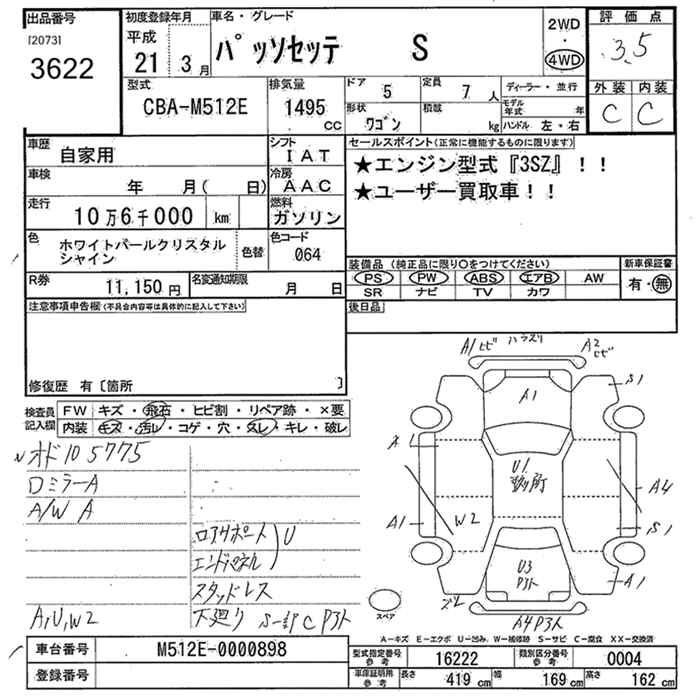 出品番号
[2073]
3622
初度登録年月
平成
21年 3月
車名・グレード
パッソセッテ S
2WD
・
4WD
評価点
3.5
外装 内装
C C
型式
CBA-M512E
排気量
1495 CC
ドア 5
定員 7 人
形状 ワゴン
積載 kg
ディーラー・並行
モデル年式 年
ハンドル 左・右
車歴
自家用
シフト
IAT
車検
年 月( 日)
冷房
AAC
走行
10万6千000 km
燃料
ガソリン
色
ホワイトパールクリスタル
シャイン
色替
色コード
064
R券
11,150 円
名変通知期限
月 日
セールスポイント(正常に機能するものに限ります)
★エンジン型式『3SZ』!!
★ユーザー買取車!!
装備品(純正品に限り○をつけてください)
新車保証書
PS PW ABS エアB AW
SR ナビ TV カワ
有・無
後日品
注意事項申告欄(不具合内容等は具体的に記入して下さい)
修復歴 有〔箇所 〕
検査員
記入欄
FW キズ・飛石・ヒビ割・リペア跡・×要
内装 キズ・汚レ・コゲ・穴・スレ・キレ・破レ
オド105775
ロミラーA
A/W A
ロアサポート
エンドパネル
U
スタッドレス
A,U,W2
下廻り S一部C P3ト
A1ヒビ
A2ヒビ
A1
S1
A1
U1
A4
A1
W2
S1
U3
P3ト
A1
A4P3ト
スペア
A-キズ E-エクボ U-凹み W-補修跡 S-サビ C-腐食 XX-交換済
車台番号
M512E-0000898
登録番号
型式指定番号
参考
16222
類別区分番号
参考
0004
車庫証明用
参考
長さ 419 cm
幅 169 cm
高さ 162 cm